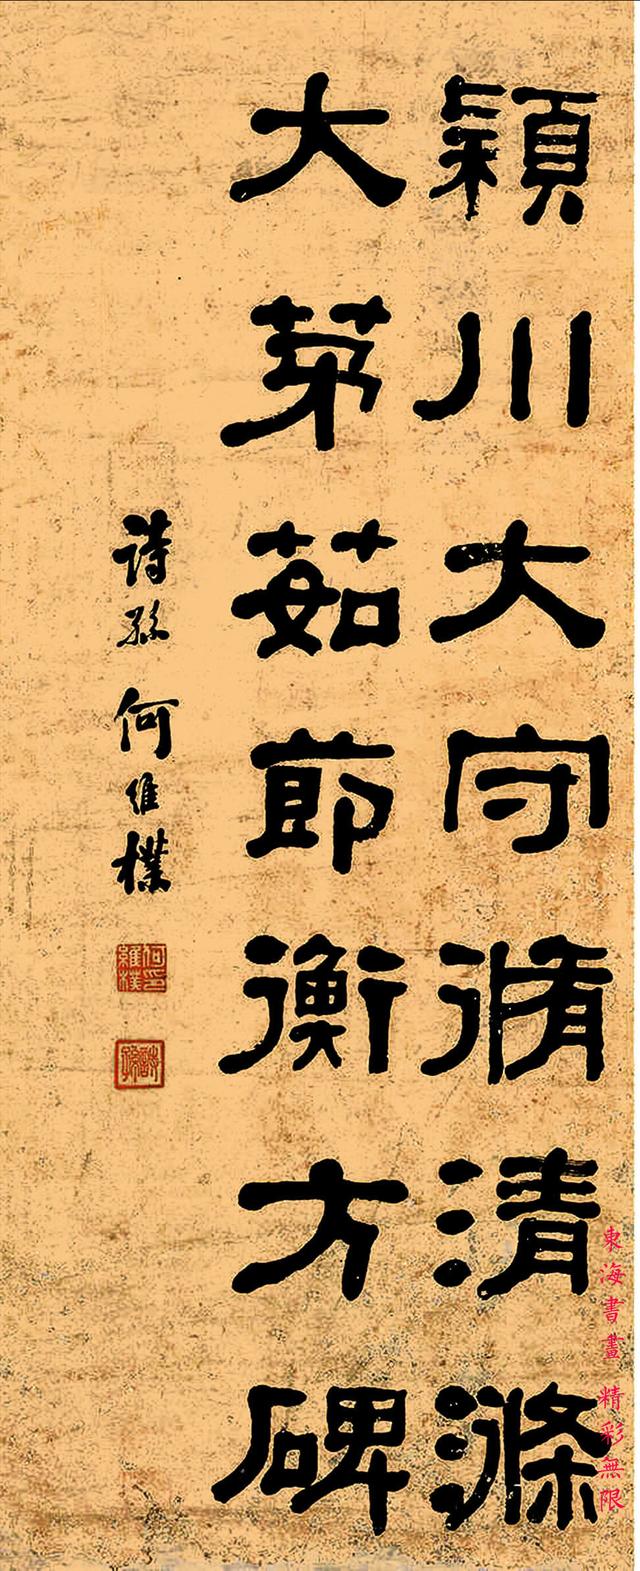 穎川大守脩清滌
大茅茹節衡方碑
詩孫何維樸
何維樸印
詩孫
東海書畫 精彩無限